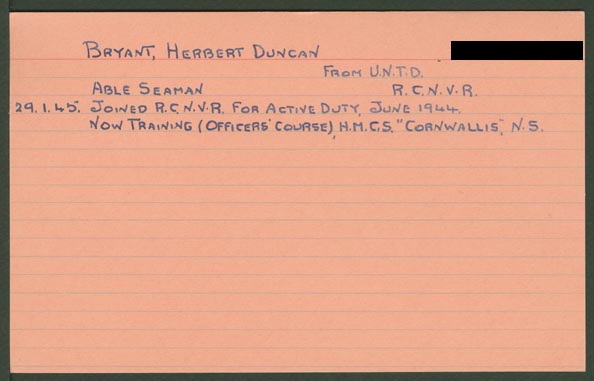 BRYANT, HERBERT DUNCAN
FROM U.N.T.D.
ABLE SEAMAN R.C.N.V.R.
29.1.45. JOINED R.C.N.V.R. FOR ACTIVE DUTY, JUNE 1944.
NOW TRAINING (OFFICERS' COURSE), H.M.C.S. "CORNWALLIS", N.S.